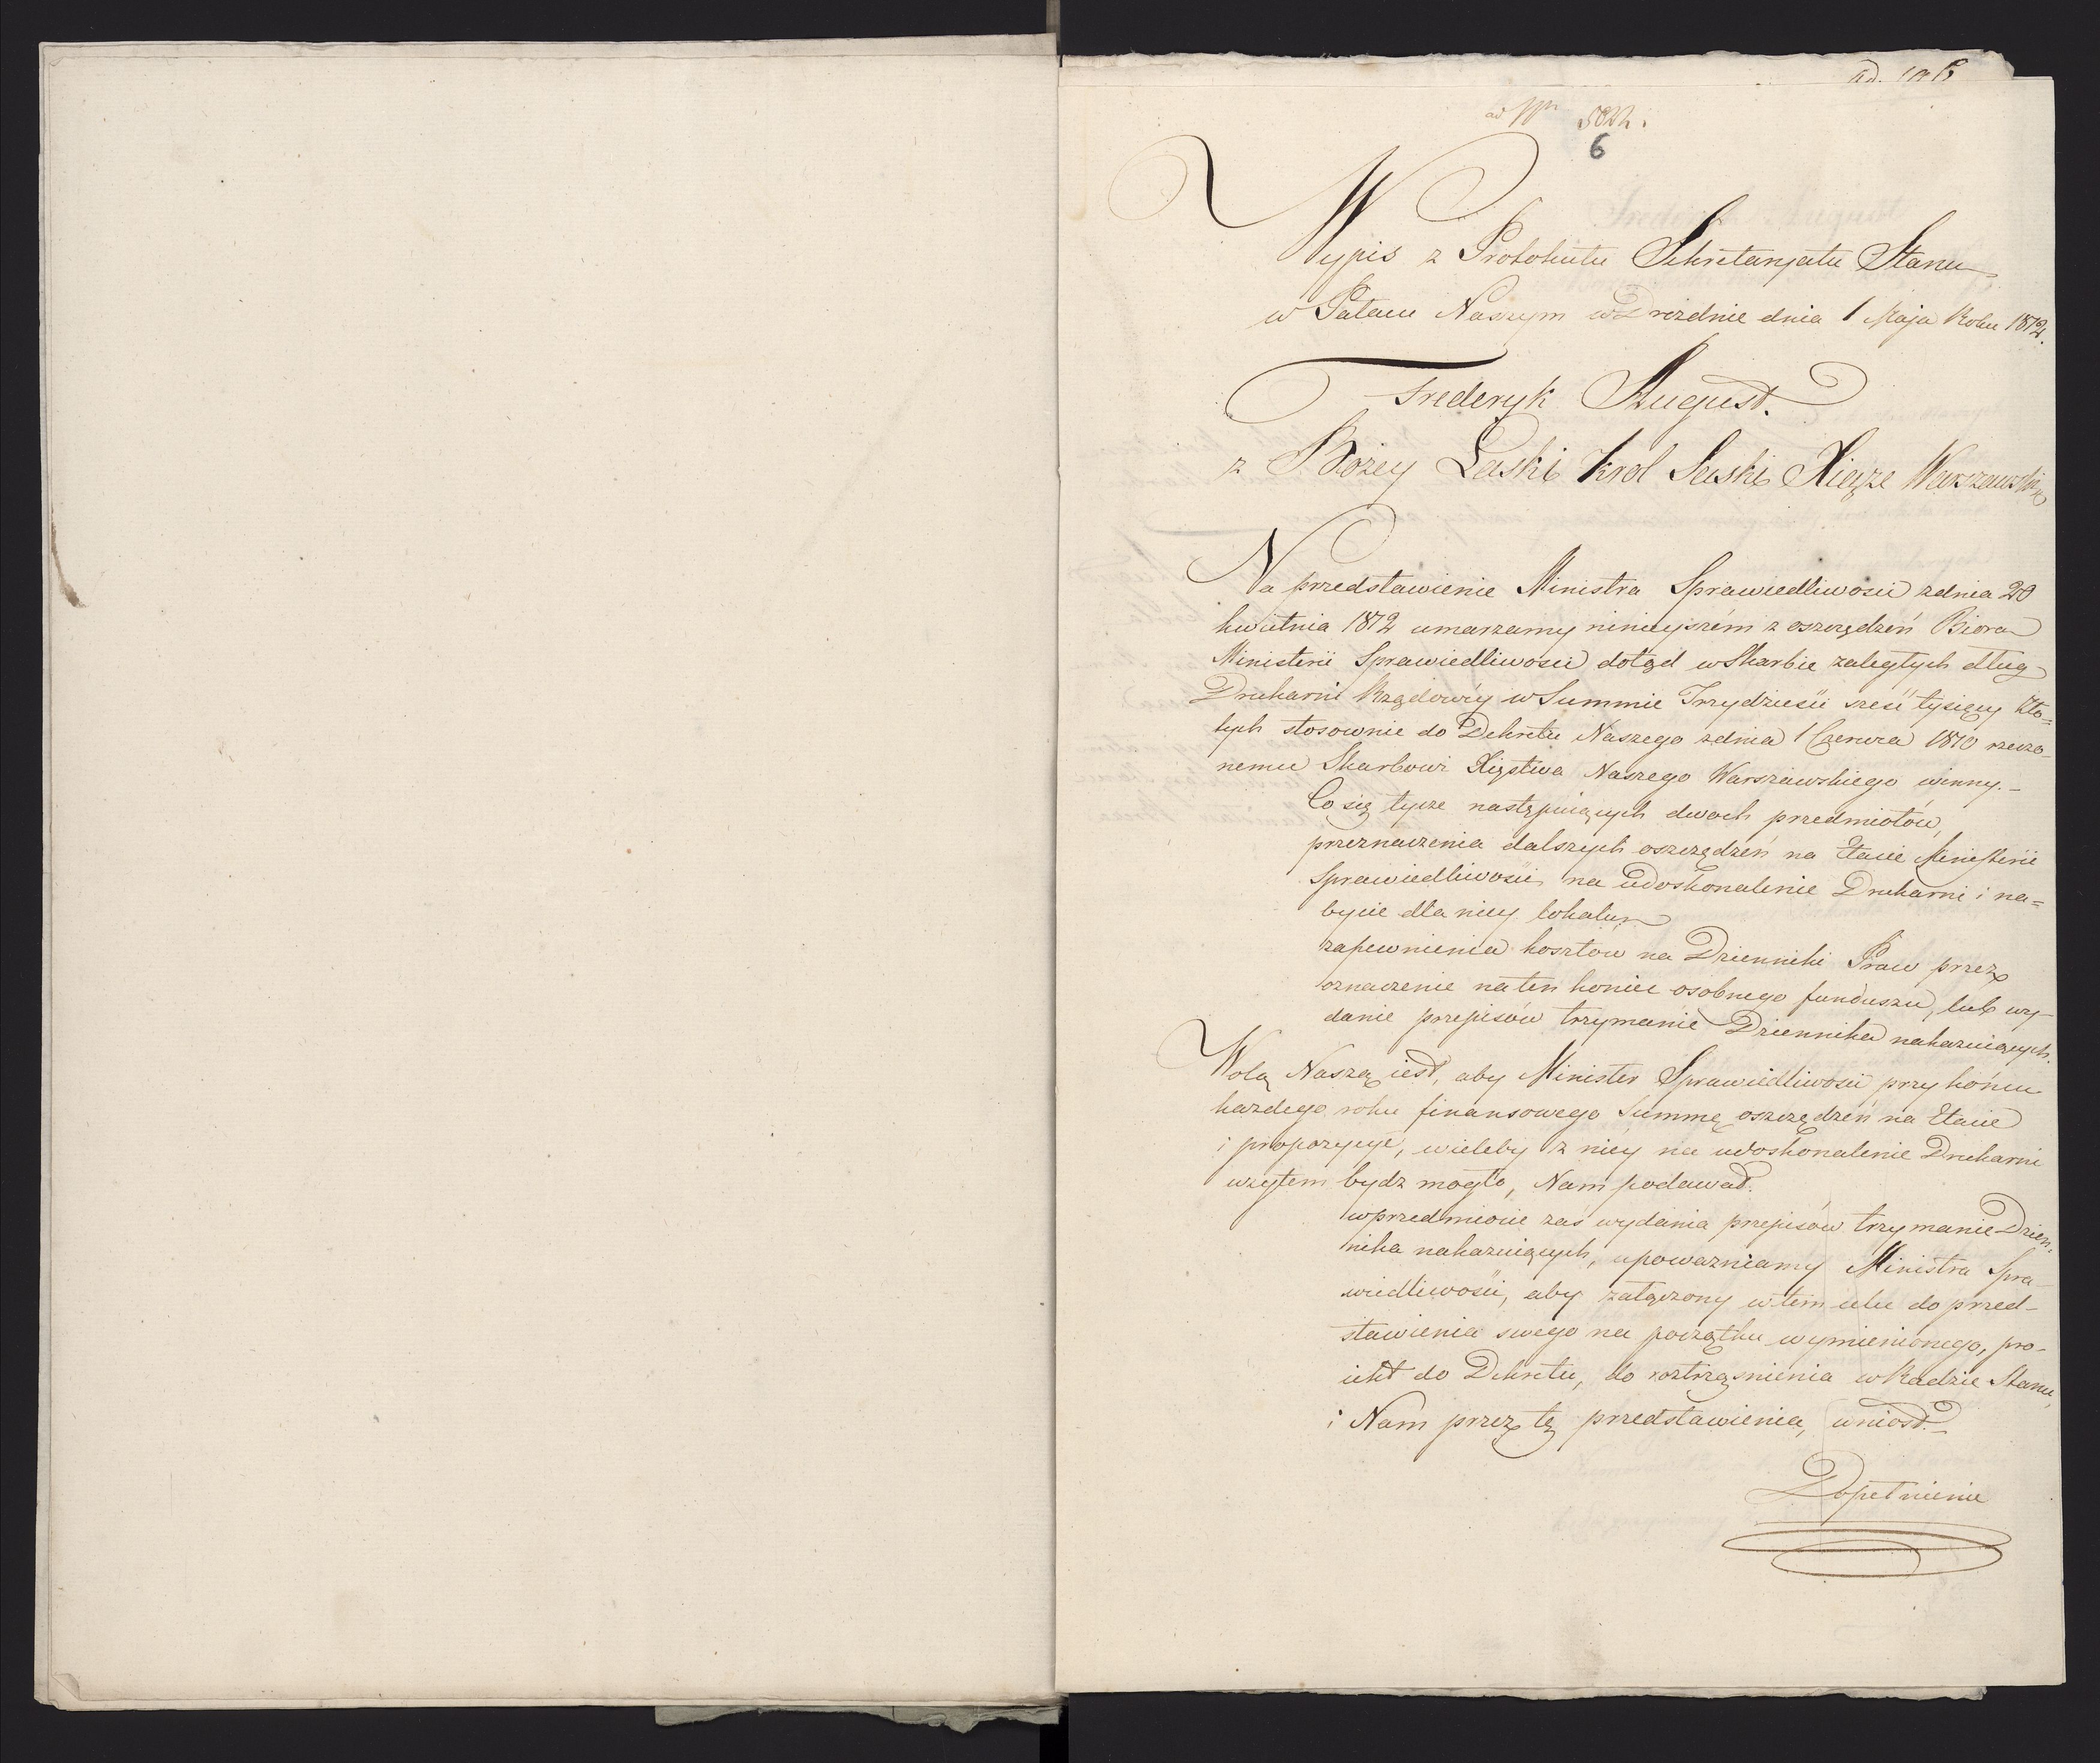 6
Wypis z Protokułu Sekretaryatu Stanu
w Pałacu Naszym w Dreźdnie dnia 1 Maja Roku 1812.
Frederyk August.
z Bożey Łaski Krol Saski Xiąże Warszawski,
Na przedstawienie Ministra Sprawiedliwości z dnia 20
kwietnia 1812 umarzamy ninieyszém z oszczędzeń Biora
Ministerii Sprawiedliwości dotąd w Skarbie zaległych dług
Drukarni Rządowéy w Summie Trzydzieści sześć tysięcy Zło=
tych stosownie do Dekretu Naszego z dnia 1 Czerwca 1810 rzeczo-
nemu Skarbowi Xięstwa Naszego Warszawskiego winny.-
Co się tycze następuiących dwoch przedmiotów,
przeznaczenia dalszych oszczędzeń na Etacie Ministerii
Sprawiedliwości, na udoskonalenie Drukarni i na=
bycie dla niey lokalu,
zapewnienia kosztów na Dzienniki Praw przez
oznaczenie na ten koniec osobnego funduszu, lub wy-
danie przepisów trzymanie Dziennika nakazuiących.
Wolą Naszą iest, aby Minister Sprawiedliwości przy końcu
każdego roku finansowego Summę oszczędzeń na Etacie
i propozycye, wieleby z niey na udoskonalenie Drukarni
użytem bydz mogło, Nam podawał.
w przedmiocie zaś wydania przepisów trzymanie Dzien-
nika nakazuiących, upoważniamy Ministra Spra-
wiedliwości, aby załączony w tem celu do przed-
stawienia swego na początku wymienionego, pro-
iekt do Dekretu, do roztrząśnienia w Radzie Stanu,
i Nam przez tę przedstawienia, wniosł.-
Dopełnienie